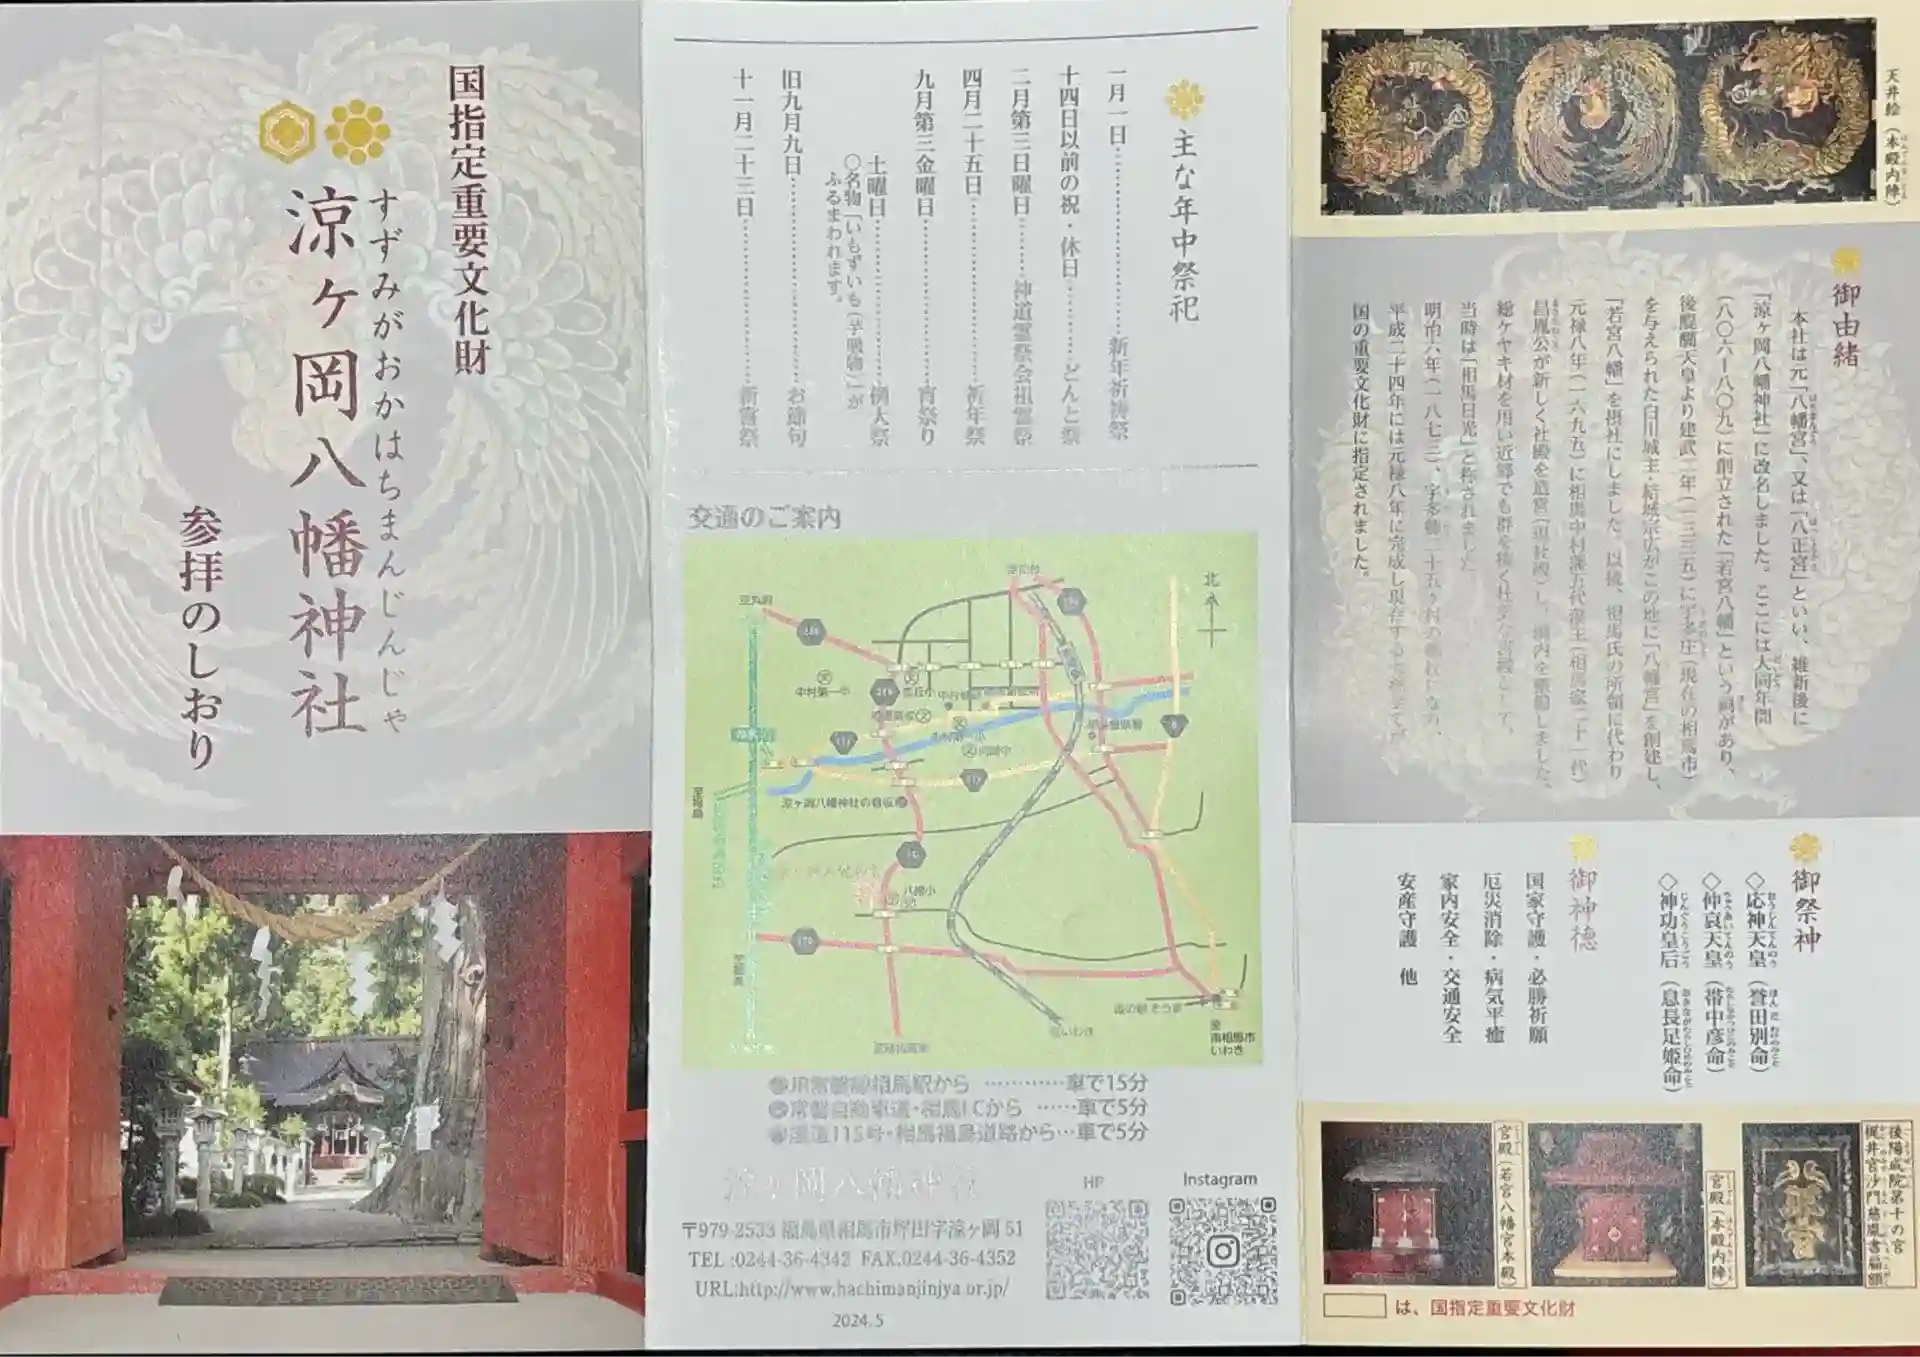 国指定重要文化財
すずみがおかはちまんじんじゃ
涼ヶ岡八幡神社
参拝のしおり
主な年中祭祀
一月一日…………新年祈祷祭
十四日以前の祝・休日…………どんと祭
二月第三日曜日……神道霊祭会祖霊祭
四月二十五日…………祈年祭
九月第三金曜日…………宵祭り
土曜日…………例大祭
〇名物「いもずいも(芋吸物)」が
ふるまわれます。
旧九月九日…………お節句
十一月二十三日…………新嘗祭
交通のご案内
北
中村第一中
涼ヶ岡八幡神社の看板
八幡小
道の駅 そうま
至
南相馬市
いわき
JR常磐線相馬駅から …………車で15分
常磐自動車道・相馬I.Cから ……車で5分
国道115号・相馬福島道路から…車で5分
涼ヶ岡八幡神社
〒979-2533 福島県相馬市坪田字涼ヶ岡 51
TEL :0244-36-4342 FAX.0244-36-4352
URL:http://www.hachimanjinjya or.jp/
2024. 5
HP
Instagram
天井絵(本殿内陣)
御由緒
本社は元「八幡宮」、又は「八正宮」といい、維新後に
「涼ヶ岡八幡神社」に改名しました。ここには大同年間
(八〇六ー八〇九)に創立された「若宮八幡」という祠があり、
後醍醐天皇より建武二年(一三三五)に宇多庄(現在の相馬市)
を与えられた白川城主・結城宗広がこの地に「八幡宮」を創建し、
「若宮八幡」を摂社にしました。以後、相馬氏の所領に代わり
元禄八年(一六九五)に相馬中村藩五代藩主(相馬家二十一代)
昌胤公が新しく社殿を造営し、
総ケヤキ材を用い近郷でも群を抜く社
当時は「相馬日光」と称されました
明治六年(一八七三)、宇多郷二十五ヶ村の
平成二十四年には元禄八年に完成し現存する
国の重要文化財に指定されました。
御祭神
◇応神天皇(誉田別命)
◇仲哀天皇(帯中彦命)
◇神功皇后(息長足姫命)
御神徳
国家守護・必勝祈願
厄災消除・病気平癒
家内安全・交通安全
安産守護 他
後陽成院第十の宮
梶井宮沙門慈胤書扁額
宮殿(本殿内陣)
宮殿(若宮八幡宮本殿)
は、国指定重要文化財